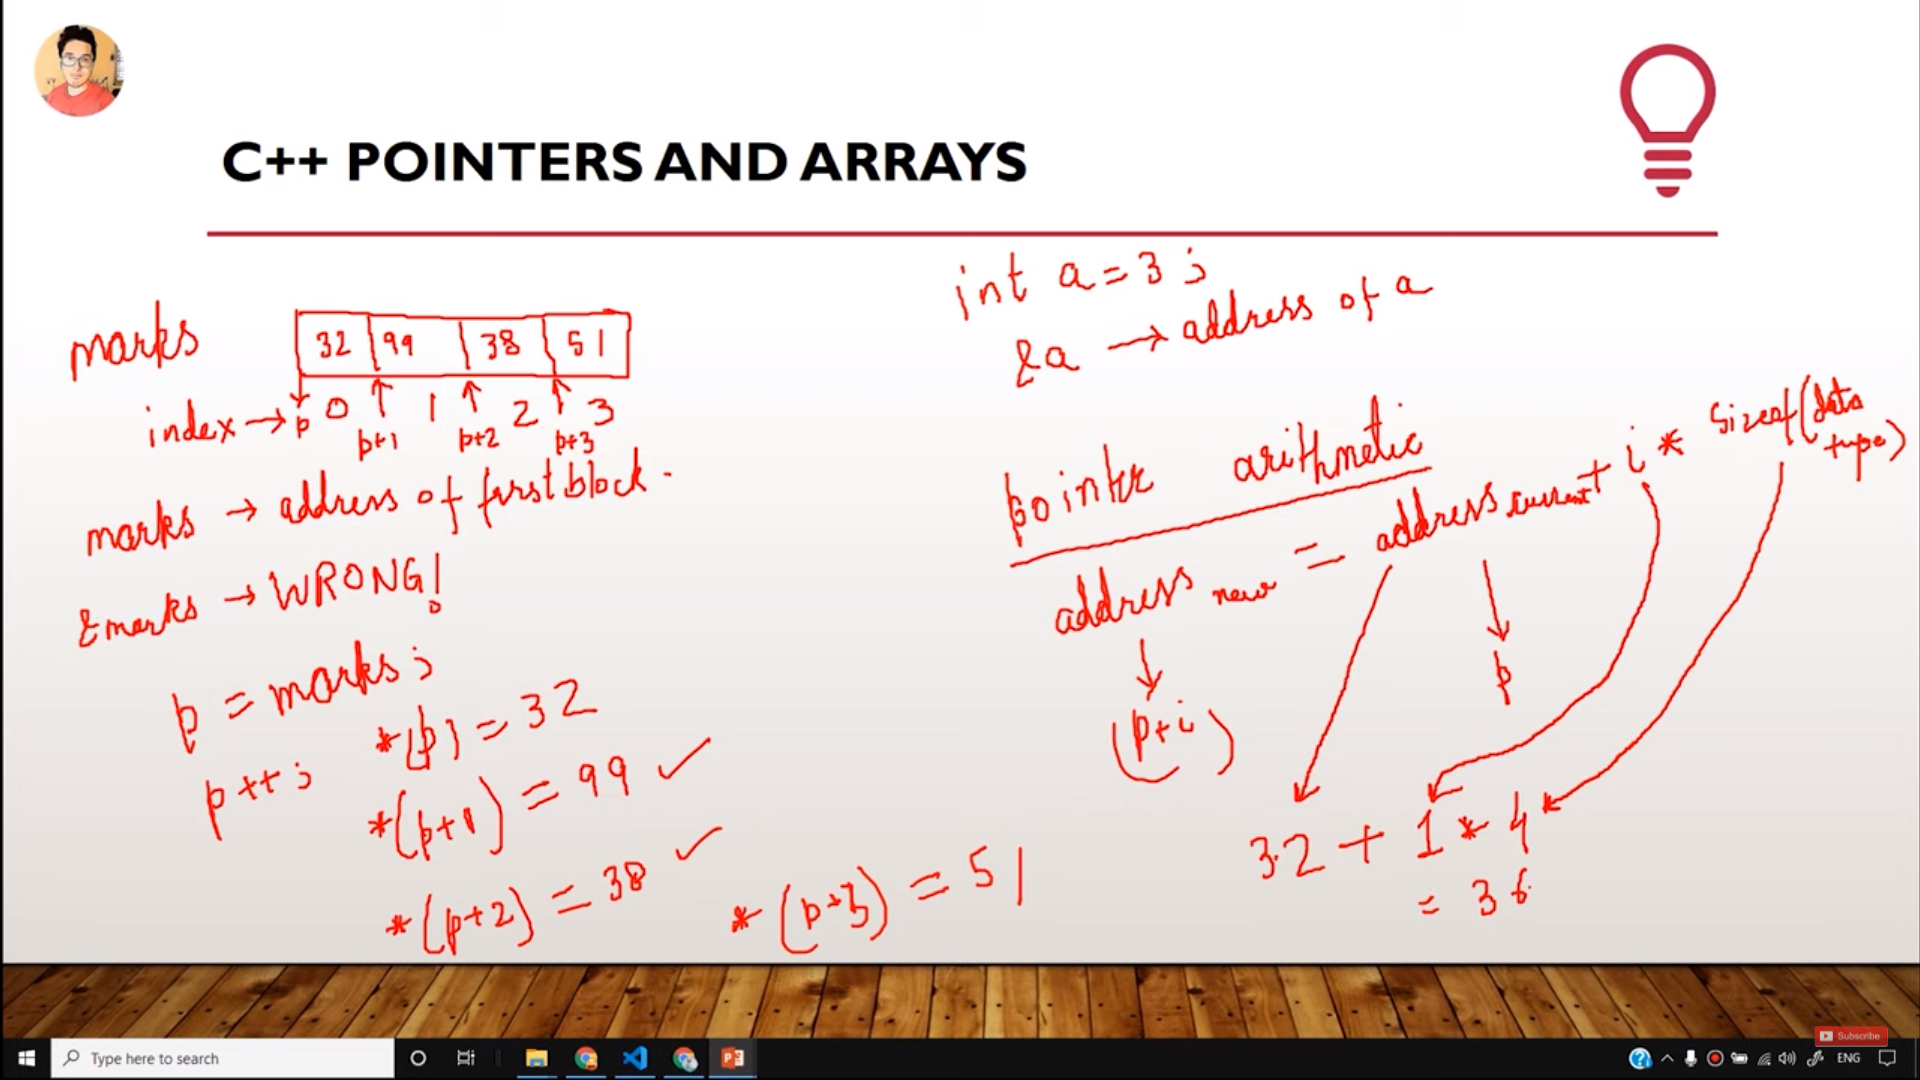 C++ POINTERS AND ARRAYS
marks
32 99 38 51
index → p 0 1 2 3
p+1 p+2 p+3
marks → address of first block.
&marks → WRONG!
p = marks;
p++;
*(p) = 32
*(p+1) = 99 ✓
*(p+2) = 38 ✓
*(p+3) = 51
int a = 3;
&a → address of a
pointer arithmetic
address new = address current + i * sizeof(data type)
(p+i)
p
32 + 1 * 4
= 36
Subscribe
Type here to search
ENG